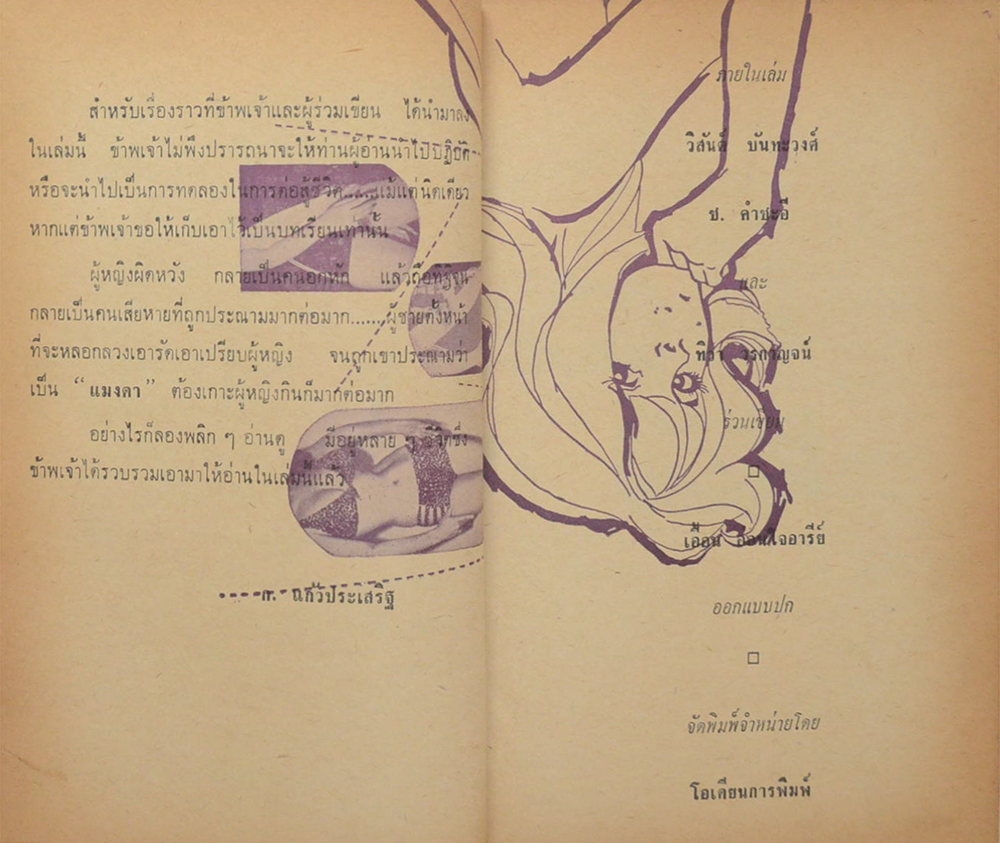 สำหรับเรื่องราวที่ข้าพเจ้าและผู้ร่วมเขียน ได้นำมาลง
ในเล่มนี้ ข้าพเจ้าไม่พึงปรารถนาจะให้ท่านผู้อ่านนำไปปฏิบัติ
หรือจะนำไปเป็นการทดลองในการต่อสู้ชีวิต......แม้แต่นิดเดียว
หากแต่ข้าพเจ้าขอให้เก็บเอาไว้เป็นบทเรียนเท่านั้น
ผู้หญิงผิดหวัง กลายเป็นคนอกหัก แล้วถือทิฐิจน
กลายเป็นคนเสียหายที่ถูกประณามมากต่อมาก......ผู้ชายตั้งหน้า
ที่จะหลอกลวงเอารัดเอาเปรียบผู้หญิง จนถูกเขาประณามว่า
เป็น “แมงดา” ต้องเกาะผู้หญิงกินก็มากต่อมาก
อย่างไรก็ลองพลิก ๆ อ่านดู มีอยู่หลาย ๆ ชีวิตซึ่ง
ข้าพเจ้าได้รวบรวมเอามาให้อ่านในเล่มนี้แล้ว
ก. แก้วประเสริฐ
ภายในเล่ม
วิสันต์ บันทะวงศ์
ช. คำชะอี
และ
ทิวา วรกาญจน์
ร่วมเขียน
เอื้อน อ่อนใจอารีย์
ออกแบบปก
จัดพิมพ์จำหน่ายโดย
โอเดียนการพิมพ์